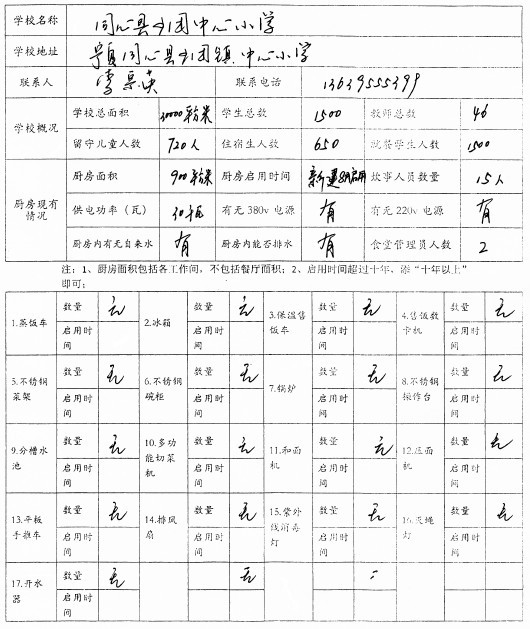 学校名称 同心县团中心小学
学校地址 宁夏同心县团镇中心小学
联系人 李 联系电话 13639555399
学校概况
学校总面积 30000平方米 学生总数 1500 教师总数 46
留守儿童人数 720人 住宿生人数 650 就餐学生人数 1500
厨房现有情况
厨房面积 900平方米 厨房启用时间 新建 启用 炊事人员数量 15人
供电功率（瓦） 30千瓦 有无380v电源 有 有无220v电源 有
厨房内有无自来水 有 厨房内能否排水 有 食堂管理员人数 2
注：1、厨房面积包括各工作间，不包括餐厅面积；2、启用时间超过十年、添“十年以上”
即可；
1.蒸饭车 数量 无 启用时间 2.冰箱 数量 无 启用时间 3.保温售饭车 数量 无 启用时间 4.售饭数卡机 数量 无 启用时间
5.不锈钢菜架 数量 无 启用时间 6.不锈钢碗柜 数量 无 启用时间 7.锅炉 数量 无 启用时间 8.不锈钢操作台 数量 无 启用时间
9.分槽水池 数量 无 启用时间 10.多功能切菜机 数量 无 启用时间 11.和面机 数量 无 启用时间 12.压面机 数量 无 启用时间
13.平板手推车 数量 无 启用时间 14.排风扇 数量 无 启用时间 15.紫外线消毒灯 数量 无 启用时间 16.灭蝇灯 数量 无 启用时间
17.开水器 数量 无 启用时间 无